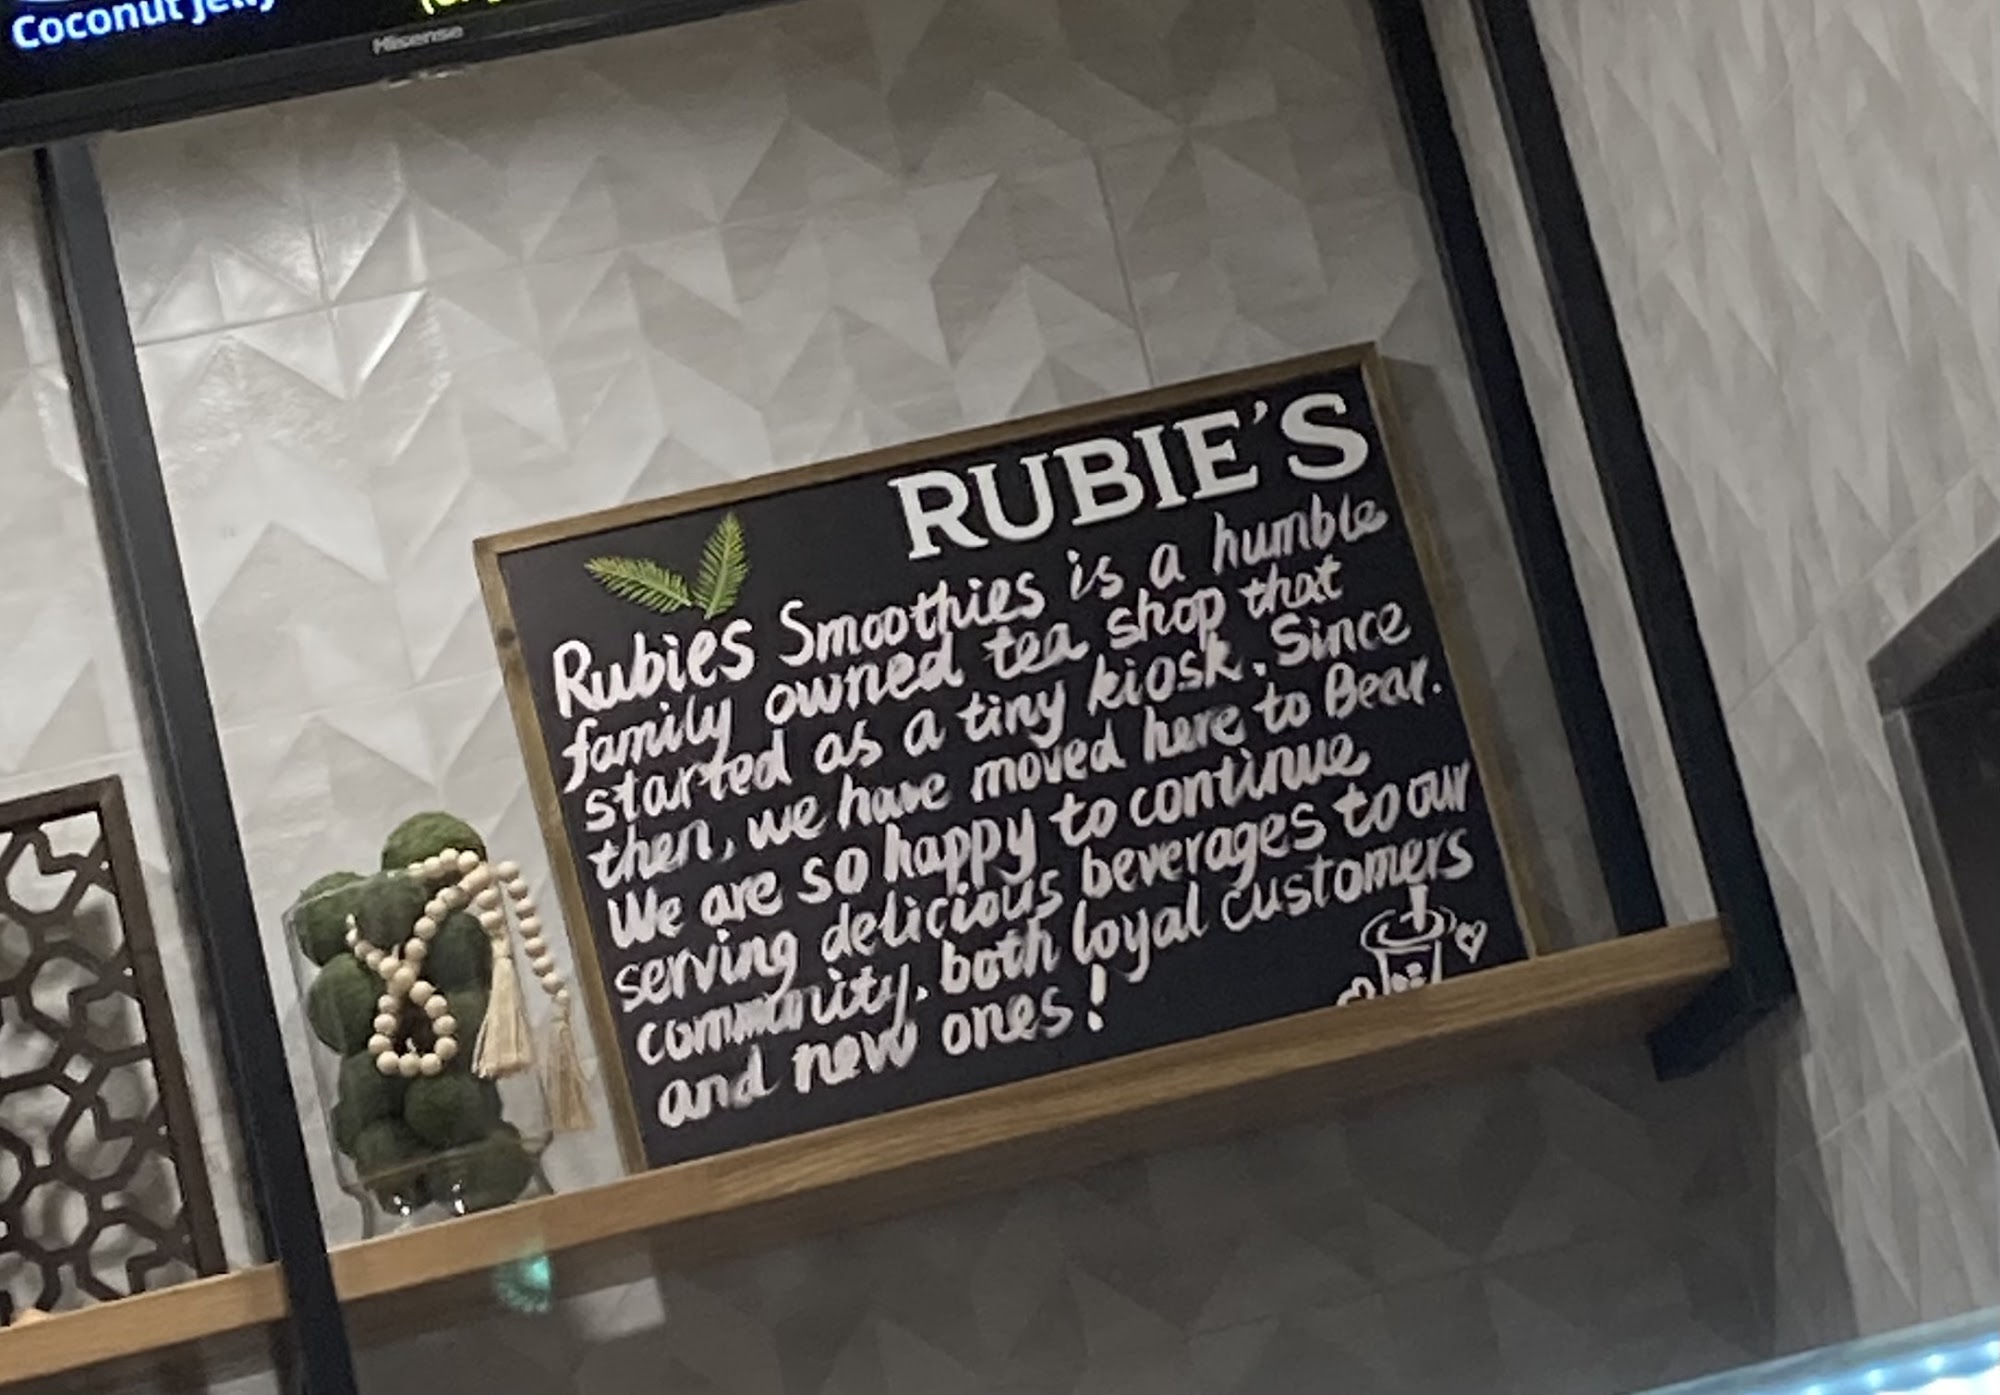 Coconut jelly
Hisense
RUBIE'S
Rubies Smoothies is a humble
family owned tea shop that
started as a tiny kiosk. Since
then, we have moved here to Bear.
We are so happy to continue
serving delicious beverages to our
community, both loyal customers
and new ones!